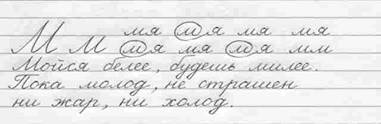 мя мя мя мя
М м мя мя мя мм
Мойся белее, будешь милее.
Пока молод, не страшен
ни жар, ни холод.